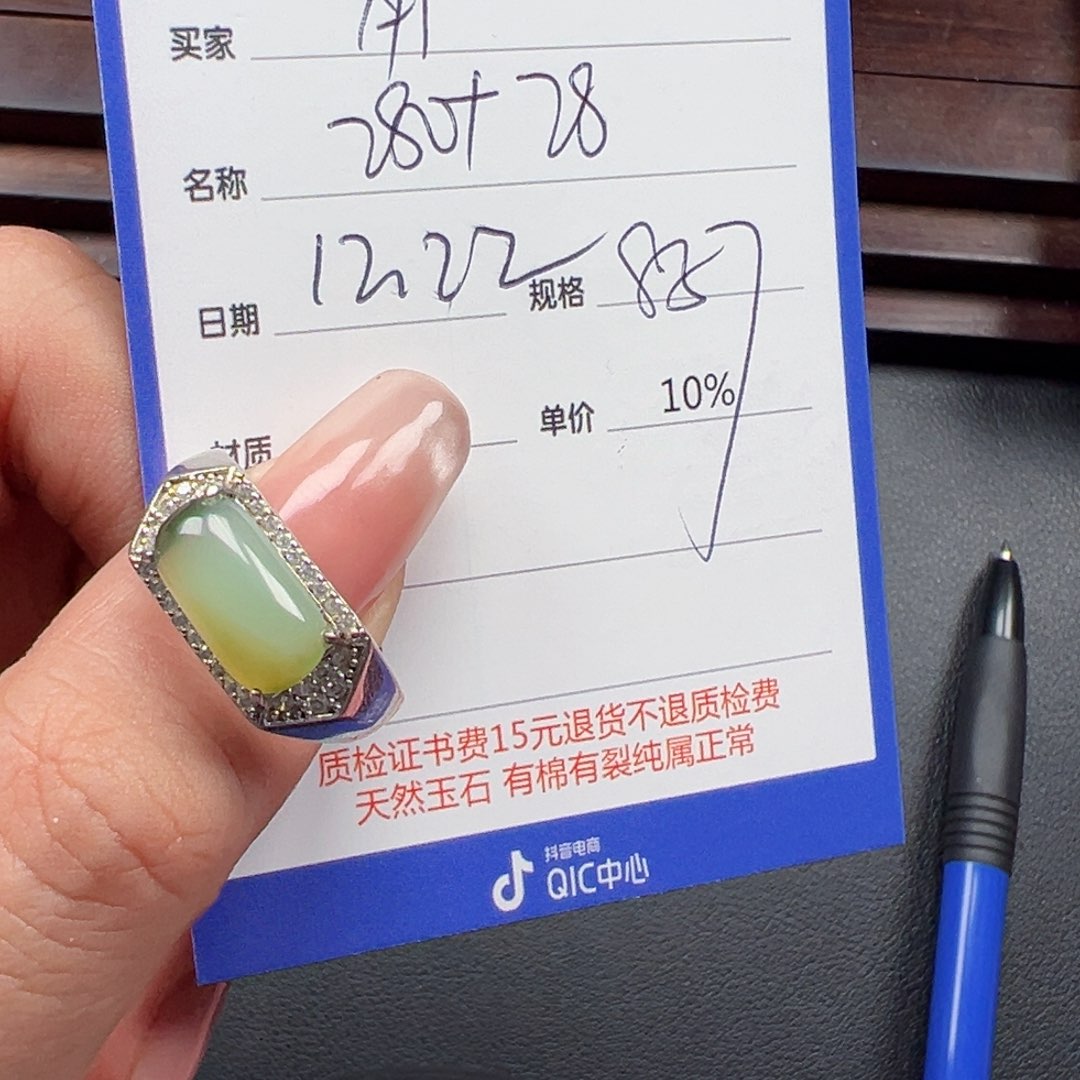 买家
名称 280+28
日期 12.22 规格 857
材质 单价 10%
质检证书费15元退货不退质检费
天然玉石 有棉有裂纯属正常
抖音电商
QIC中心